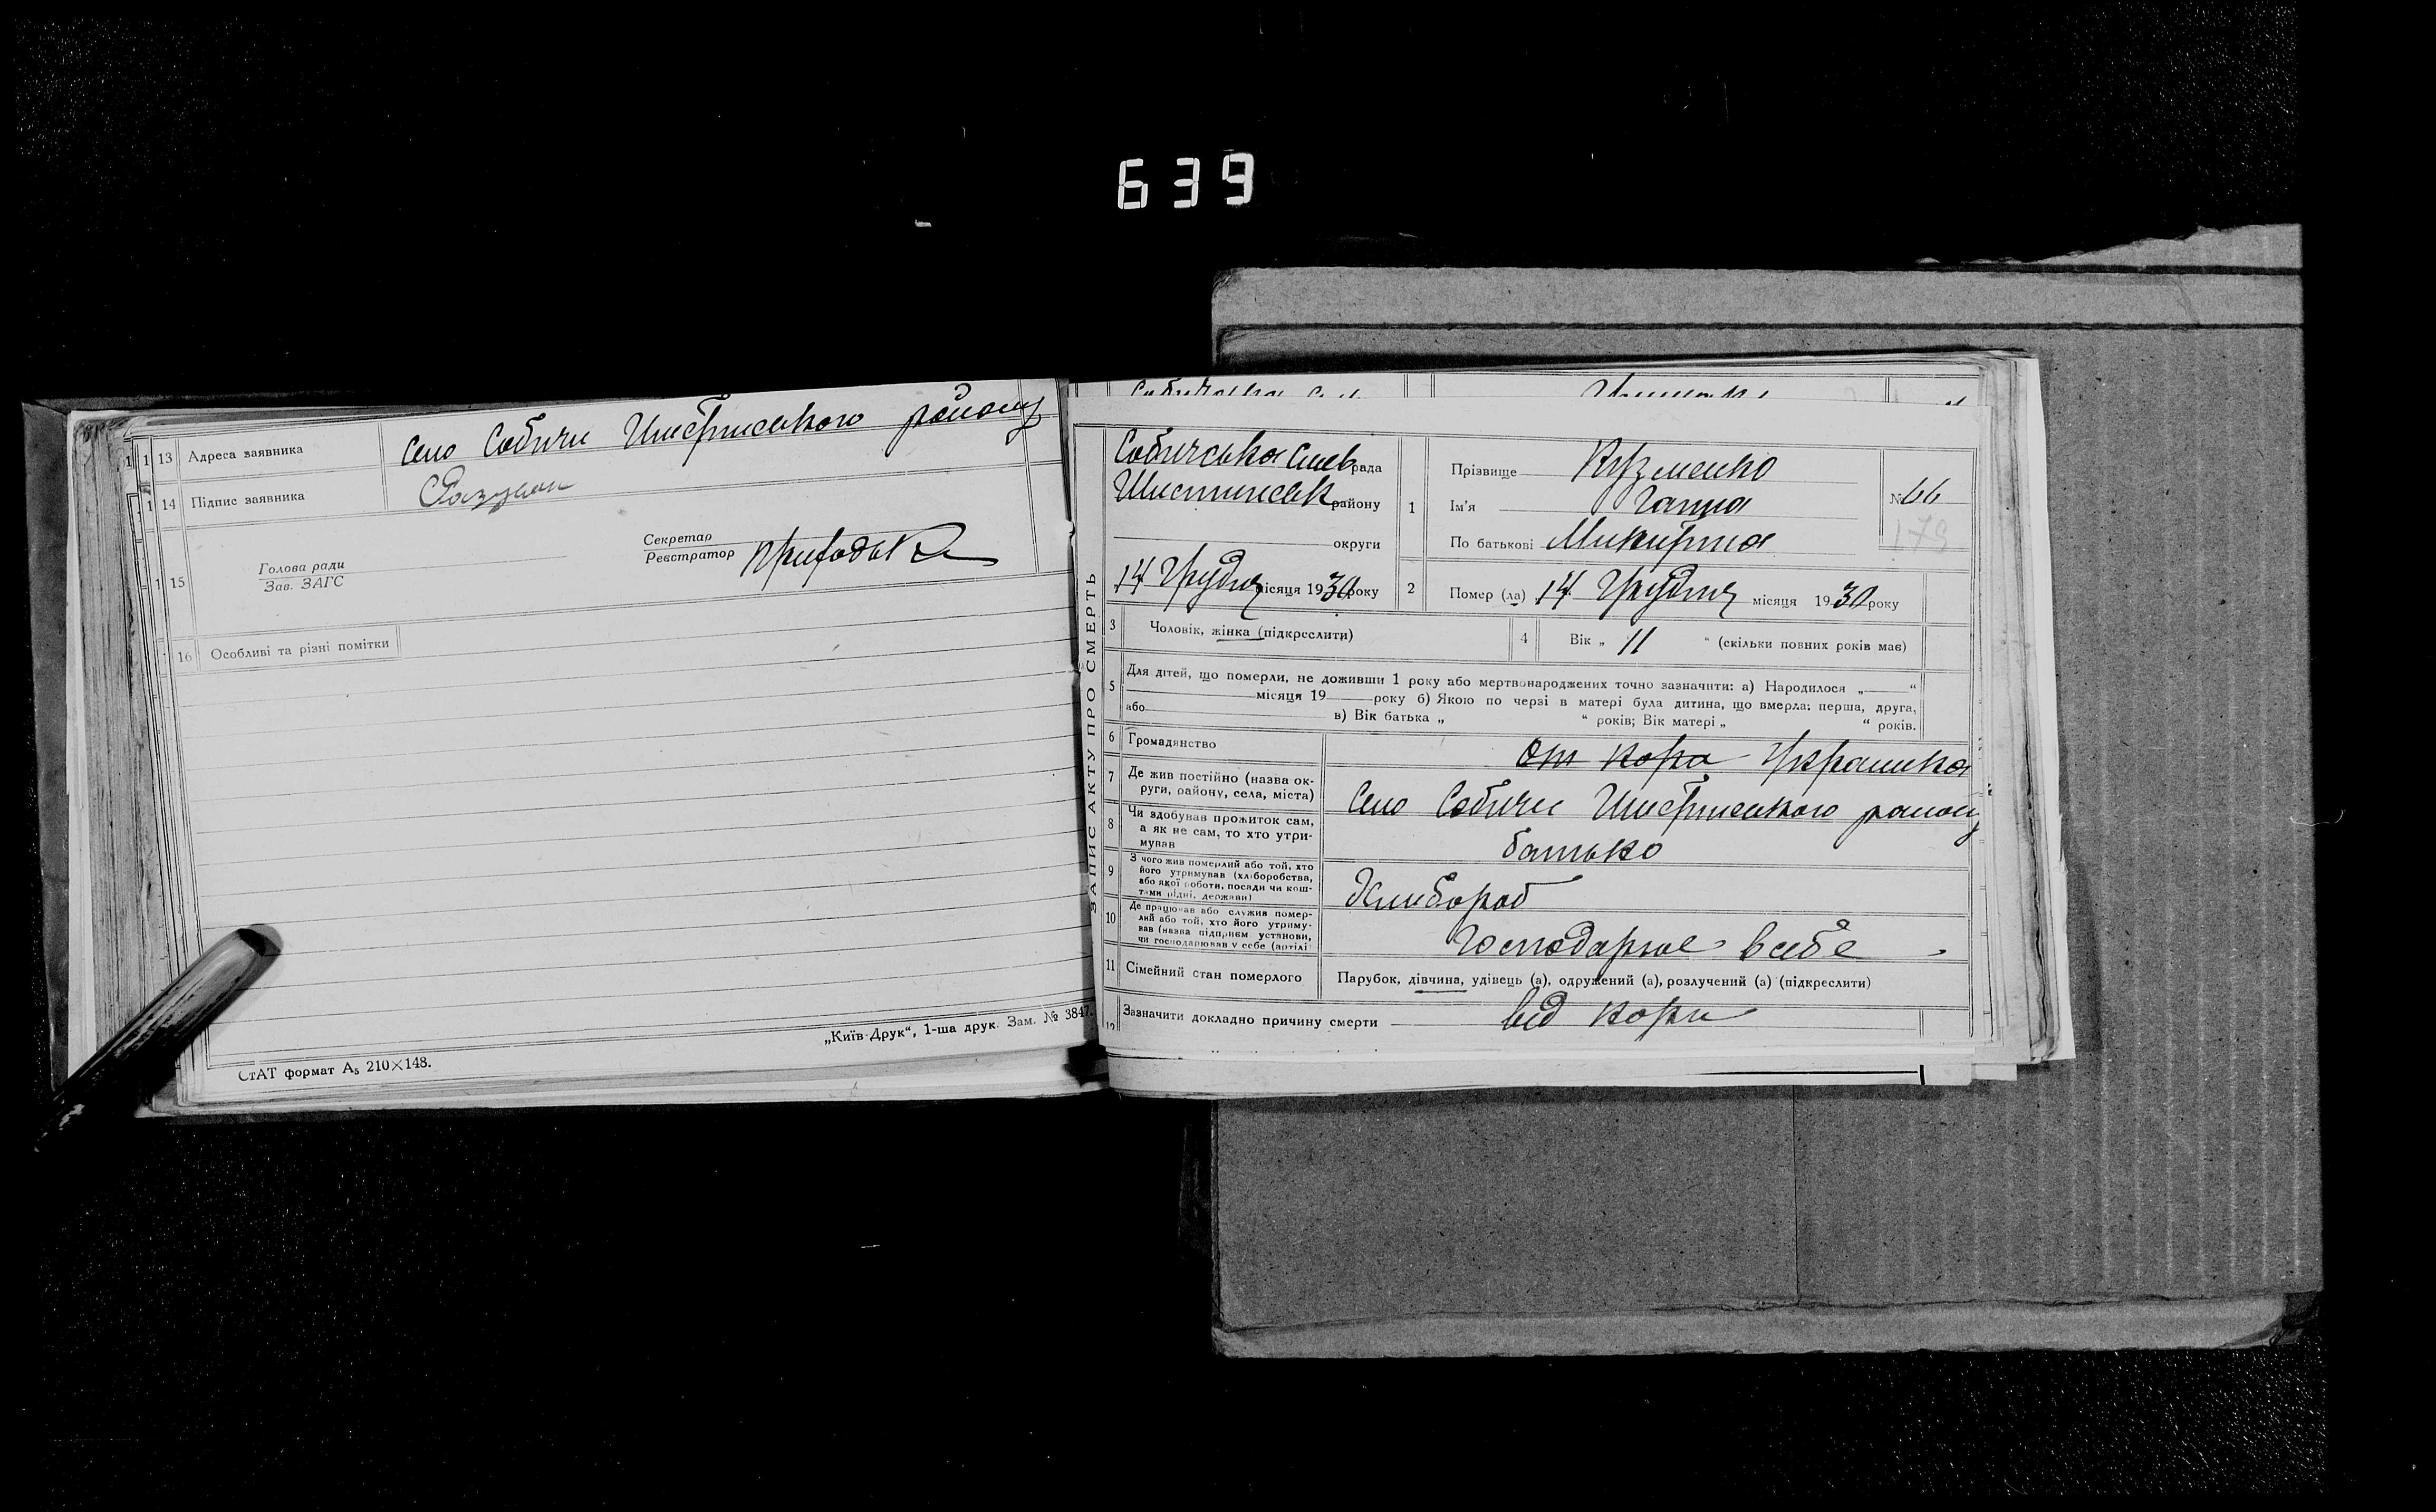 639
13 Адреса заявника Село Собичи Шостринського району
14 Підпис заявника Разумен
Секретар
Реєстратор Приходько
15 Голова ради
Зав. ЗАГС
16 Особливі та різні помітки
„Київ-Друк“, 1-ша друк. Зам. № 3847.
СтАТ формат А₅ 210×148.
ЗАПИС АКТУ ПРО СМЕРТЬ
Собичська Сильрада
Шостинськ району
округи
14 Грудня місяця 1930 року
1 Прізвище Кузменко
Ім'я Ганна
По батькові Микитина
№ 66
179
2 Помер (ла) 14 Грудня місяця 1930 року
3 Чоловік, жінка (підкреслити)
4 Вік „ 11 “ (скільки повних років має)
5 Для дітей, що померли, не доживши 1 року або мертвонароджених точно зазначити: а) Народилося „ “
місяця 19 року б) Якою по черзі в матері була дитина, що вмерла: перша, друга,
або в) Вік батька „ “ років; Вік матері „ “ років.
6 Громадянство От кора Українка
7 Де жив постійно (назва округи, району, села, міста) Село Собичи Шостринського району
8 Чи здобував прожиток сам, а як не сам, то хто утримував батько
9 З чого жив померлий або той, хто його утримував (хліборобства, або якої роботи, посади чи коштами рідні, держави) Хлибороб
10 Де працював або служив померлий або той, хто його утримував (назва підприєм. установи, чи господарював у себе (артілі Господарює в себе
11 Сімейний стан померлого Парубок, дівчина, удівець (а), одружений (а), розлучений (а) (підкреслити)
12 Зазначити докладно причину смерти від кори